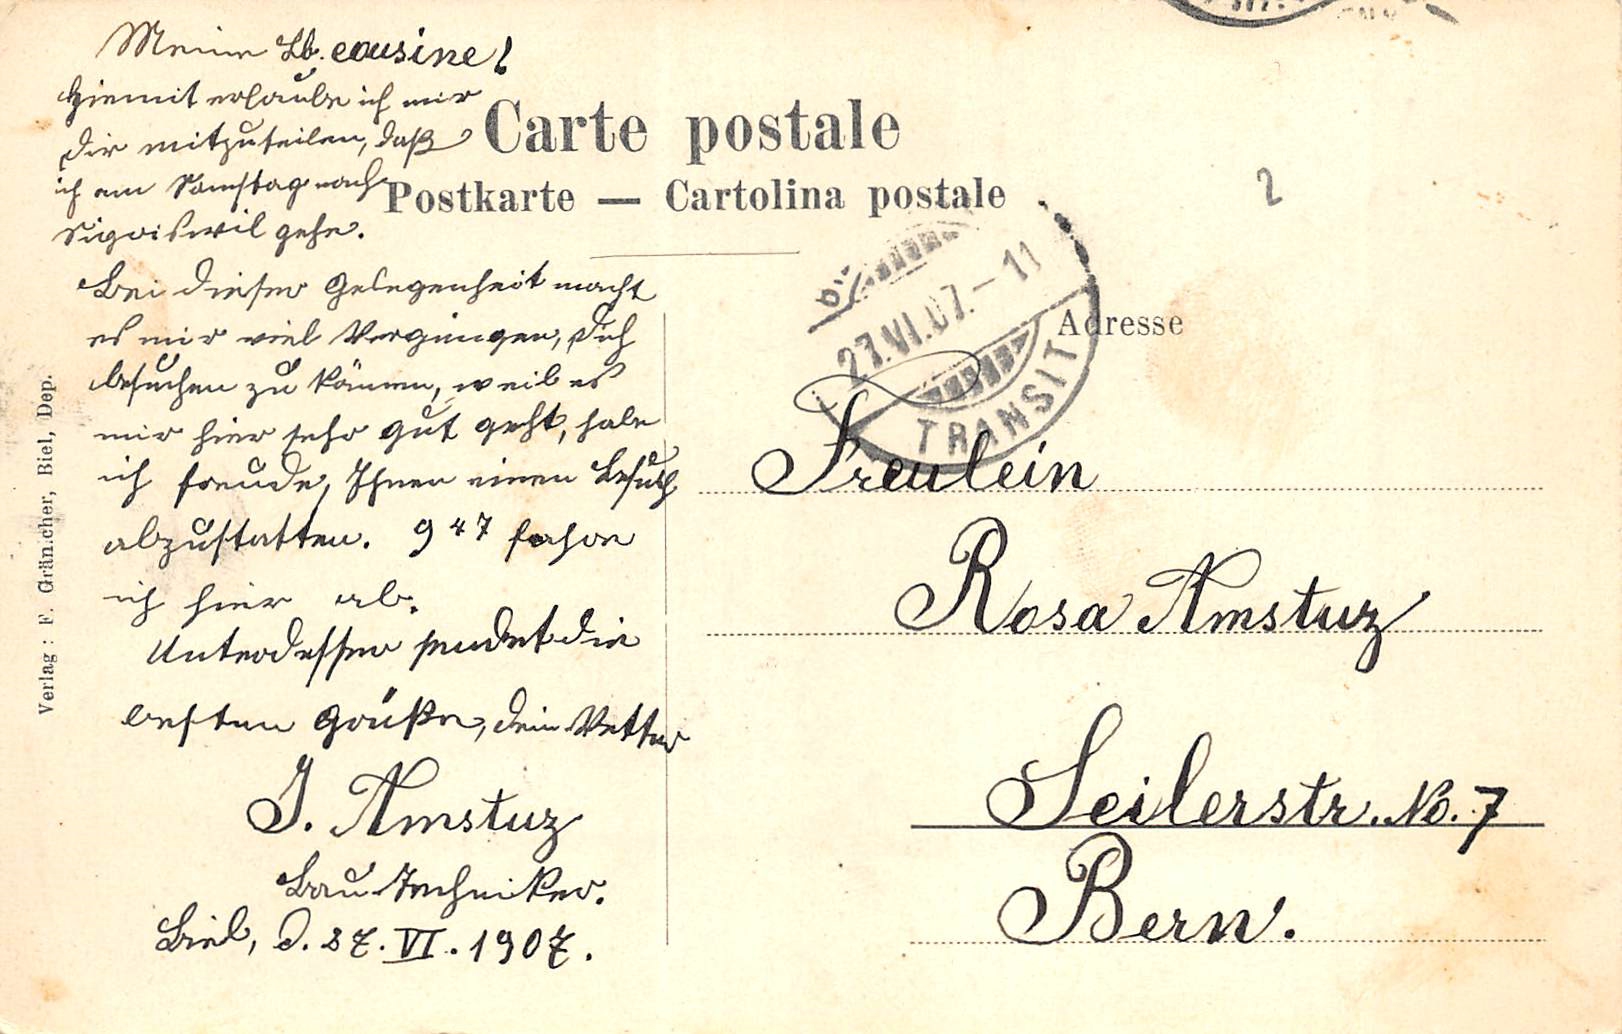 Meine Lb. cousine!
Hiemit erlaube ich mir
Dir mitzuteilen, daß
ich am Samstag nach
Sigriswil gehe.
Bei dieser Gelegenheit macht
es mir viel Vergnügen, Dich
besuchen zu können, weil es
mir hier sehr gut geht, habe
ich freude, Ihnen einen Besuch
abzustatten. 9 47 fahre
ich hier ab.
Unterdessen sendet die
besten Grüße, dein Vetter
J. Amstuz
Bau Techniker.
Biel, d. 27. VI. 1907.
Carte postale
Postkarte — Cartolina postale
2
27.VI.07.-11
TRANSIT
Adresse
Freulein
Rosa Amstuz
Seilerstr. No. 7
Bern.
Verlag: F. Grän.cher, Biel, Dep.